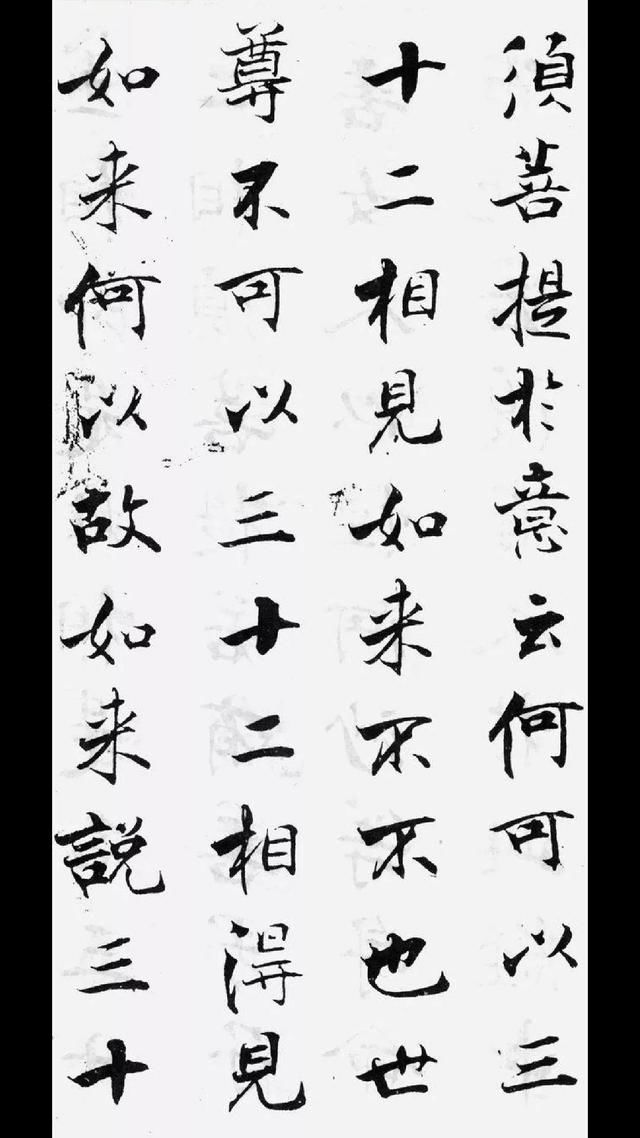 須菩提於意云何可以三
十二相見如来不不也世
尊不可以三十二相得見
如来何以故如来説三十